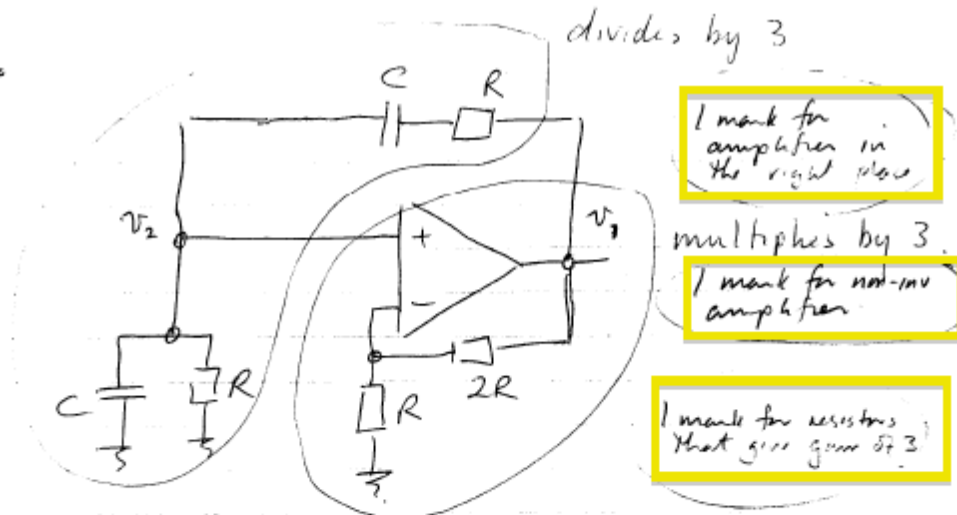 divides by 3
C
R
1 mark for
amplifier in
the right place
v₂
+
v₁
multiplies by 3.
−
1 mark for non-inv
amplifier
2R
C
R
R
1 mark for resistors
that give gain of 3